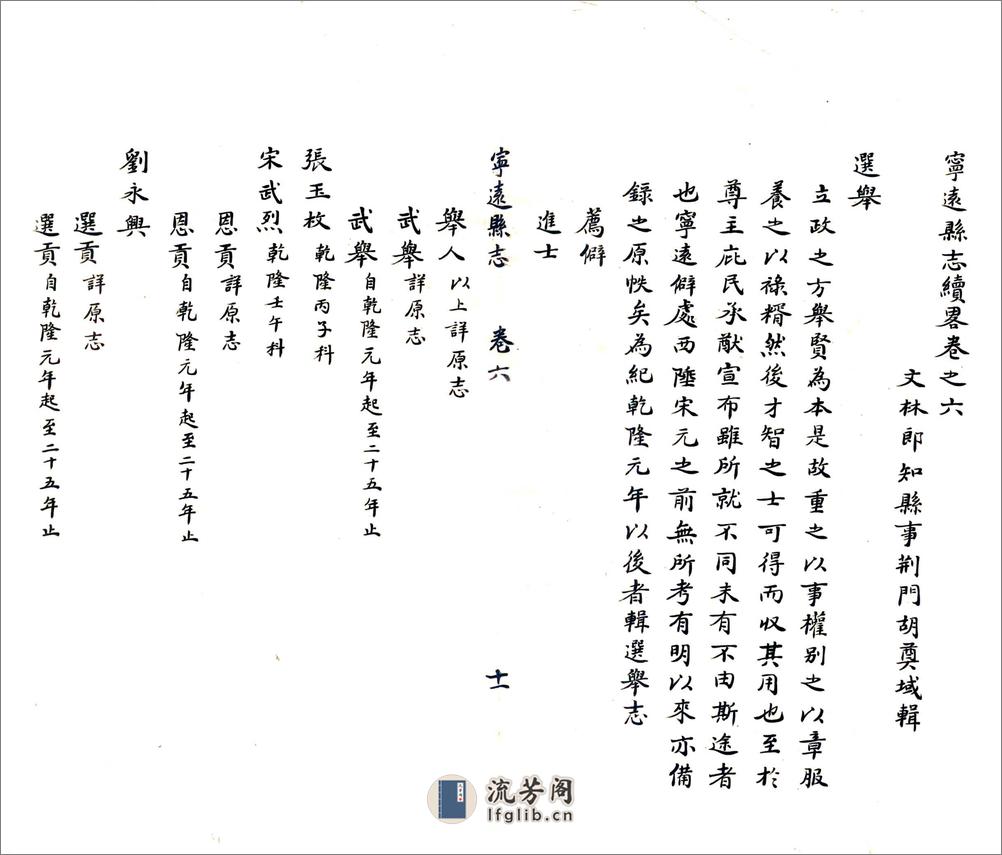 寧遠縣志續畧卷之六
文林郎知縣事荆門胡奠域輯
選舉
立政之方舉賢為本是故重之以事權别之以章服
養之以祿糈然後才智之士可得而収其用也至於
尊主庇民承猷宣布雖所就不同未有不由斯途者
也寧遠僻處西陲宋元之前無所考有明以來亦備
錄之原帙矣為紀乾隆元年以後者輯選舉志
薦僻
進士
寧遠縣志 卷六 十一
舉人以上詳原志
武舉詳原志
武舉自乾隆元年起至二十五年止
張玉枚乾隆丙子科
宋武烈乾隆壬午科
恩貢詳原志
恩貢自乾隆元年起至二十五年止
劉永興
選貢詳原志
選貢自乾隆元年起至二十五年止
流芳阁
lfglib.cn